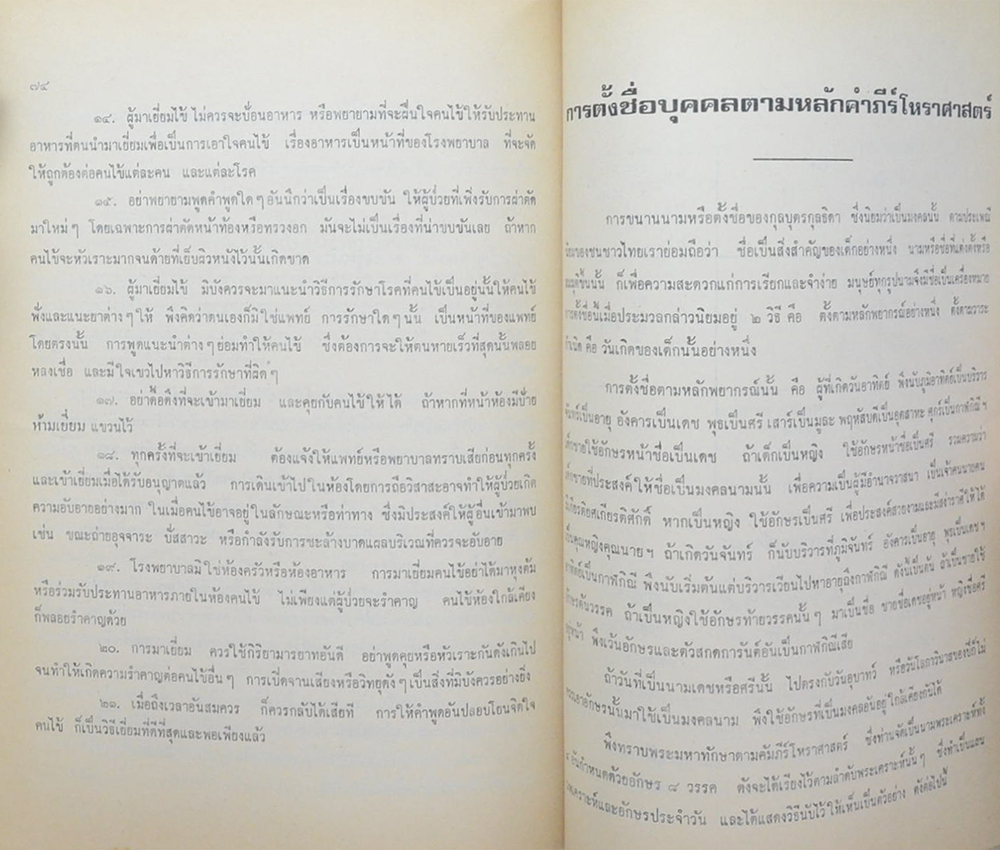 ๗๔
๑๔. ผู้มาเยี่ยมไข้ ไม่ควรจะป้อนอาหาร หรือพยายามที่จะฝืนใจคนไข้ให้รับประทาน
อาหารที่ตนนำมาเยี่ยมเพื่อเป็นการเอาใจคนไข้ เรื่องอาหารเป็นหน้าที่ของโรงพยาบาล ที่จะจัด
ให้ถูกต้องต่อคนไข้แต่ละคน และแต่ละโรค
๑๕. อย่าพยายามพูดคำพูดใด ๆ อันนึกว่าเป็นเรื่องขบขัน ให้ผู้ป่วยที่เพิ่งรับการผ่าตัด
มาใหม่ ๆ โดยเฉพาะการผ่าตัดหน้าท้องหรือทรวงอก มันจะไม่เป็นเรื่องที่น่าขบขันเลย ถ้าหาก
คนไข้จะหัวเราะมากจนด้ายที่เย็บผิวหนังไว้นั้นเกิดขาด
๑๖. ผู้มาเยี่ยมไข้ มิบังควรจะมาแนะนำวิธีการรักษาโรคที่คนไข้เป็นอยู่นั้นให้คนไข้
ฟังและแนะยาต่าง ๆ ให้ พึงคิดว่าตนเองก็มิใช่แพทย์ การรักษาใด ๆ นั้น เป็นหน้าที่ของแพทย์
โดยตรงนั้น การพูดแนะนำต่าง ๆ ย่อมทำให้คนไข้ ซึ่งต้องการจะให้ตนหายเร็วที่สุดนั้นพลอย
หลงเชื่อ และมีใจเขวไปหาวิธีการรักษาที่ผิด ๆ
๑๗. อย่าดื้อดึงที่จะเข้ามาเยี่ยม และคุยกับคนไข้ให้ได้ ถ้าหากที่หน้าห้องมีป้าย
ห้ามเยี่ยม แขวนไว้
๑๘. ทุกครั้งที่จะเข้าเยี่ยม ต้องแจ้งให้แพทย์หรือพยาบาลทราบเสียก่อนทุกครั้ง
และเข้าเยี่ยมเมื่อได้รับอนุญาตแล้ว การเดินเข้าไปในห้องโดยการถือวิสาสะอาจทำให้ผู้ป่วยเกิด
ความอับอายอย่างมาก ในเมื่อคนไข้อาจอยู่ในลักษณะหรือท่าทาง ซึ่งมิประสงค์ให้ผู้อื่นเข้ามาพบ
เช่น ขณะถ่ายอุจจาระ ปัสสาวะ หรือกำลังรับการชะล้างบาดแผลบริเวณที่ควรจะอับอาย
๑๙. โรงพยาบาลมิใช่ห้องครัวหรือห้องอาหาร การมาเยี่ยมคนไข้อย่าได้มาหุงต้ม
หรือร่วมรับประทานอาหารภายในห้องคนไข้ ไม่เพียงแต่ผู้ป่วยจะรำคาญ คนไข้ห้องใกล้เคียง
ก็พลอยรำคาญด้วย
๒๐. การมาเยี่ยม ควรใช้กิริยามารยาทอันดี อย่าพูดคุยหรือหัวเราะกันดังเกินไป
จนทำให้เกิดความรำคาญต่อคนไข้อื่น ๆ การเปิดจานเสียงหรือวิทยุดัง ๆ เป็นสิ่งที่มิบังควรอย่างยิ่ง
๒๑. เมื่อถึงเวลาอันสมควร ก็ควรกลับได้เสียที การให้คำพูดอันปลอบโยนจิตใจ
คนไข้ ก็เป็นวิธีเยี่ยมที่ดีที่สุดและพอเพียงแล้ว
การตั้งชื่อบุคคลตามหลักคำภีร์โหราศาสตร์
การขนานนามหรือตั้งชื่อของกุลบุตรกุลธิดา ซึ่งนิยมว่าเป็นมงคลนั้น ตามประเพณี
ของชนชาวไทยเราย่อมถือว่า ชื่อเป็นสิ่งสำคัญของเด็กอย่างหนึ่ง นามหรือชื่อที่แต่งตั้งหรือ
ขึ้นนั้น ก็เพื่อความสะดวกแก่การเรียกและจำง่าย มนุษย์ทุกรูปนามจึงมีชื่อเป็นเครื่องหมาย
การตั้งชื่อนี้เมื่อประมวลกล่าวนิยมอยู่ ๒ วิธี คือ ตั้งตามหลักพยากรณ์อย่างหนึ่ง ตั้งตามวาระ
กำเนิด คือ วันเกิดของเด็กนั้นอย่างหนึ่ง
การตั้งชื่อตามหลักพยากรณ์นั้น คือ ผู้ที่เกิดวันอาทิตย์ พึงนับภูมิอาทิตย์เป็นบริวาร
จันทร์เป็นอายุ อังคารเป็นเดช พุธเป็นศรี เสาร์เป็นมูละ พฤหัสบดีเป็นอุตสาหะ ศุกร์เป็นกาฬกิณี ฯ
เด็กชายใช้อักษรหน้าชื่อเป็นเดช ถ้าเด็กเป็นหญิง ใช้อักษรหน้าชื่อเป็นศรี รวมความว่า
เด็กชายที่ประสงค์ให้ชื่อเป็นมงคลนามนั้น เพื่อความเป็นผู้มีอำนาจวาสนา เป็นเจ้าคนนายคน
มีเกียรติยศเกียรติศักดิ์ หากเป็นหญิง ใช้อักษรเป็นศรี เพื่อประสงค์สวยงามและมีสง่าราศีให้ได้
เป็นคุณหญิงคุณนาย ฯ ถ้าเกิดวันจันทร์ ก็นับบริวารที่ภูมิจันทร์ อังคารเป็นอายุ พุธเป็นเดช ฯ
อาทิตย์เป็นกาฬกิณี พึงนับเริ่มต้นแต่บริวารเวียนไปหาอายุถึงกาฬกิณี ดังนี้เป็นต้น ถ้าเป็นชายใช้
อักษรต้นวรรค ถ้าเป็นหญิงใช้อักษรท้ายวรรคนั้น ๆ มาเป็นชื่อ ชายชื่อเดชอยู่หน้า หญิงชื่อศรี
อยู่หน้า พึงเว้นอักษรและตัวสกดการันต์อันเป็นกาฬกิณีเสีย
ถ้าวันที่เป็นนามเดชหรือศรีนั้น ไปตรงกับวันอุบาทว์ หรือวันโลกาวินาสของปีก็ไม่
ควรเอาอักษรนั้นมาใช้เป็นมงคลนาม พึงใช้อักษรที่เป็นมงคลอันอยู่ใกล้เคียงกันได้
พึงทราบพระมหาทักษาตามคัมภีร์โหราศาสตร์ ซึ่งท่านจัดเป็นนามพระเคราะห์ทั้ง
อันกำหนดด้วยอักษร ๘ วรรค ดังจะได้เรียงไว้ตามลำดับพระเคราะห์นั้น ๆ ซึ่งทำเป็นแผน
พระเคราะห์และอักษรประจำวัน และได้แสดงวิธีนับไว้ให้เห็นเป็นตัวอย่าง ดังต่อไปนี้